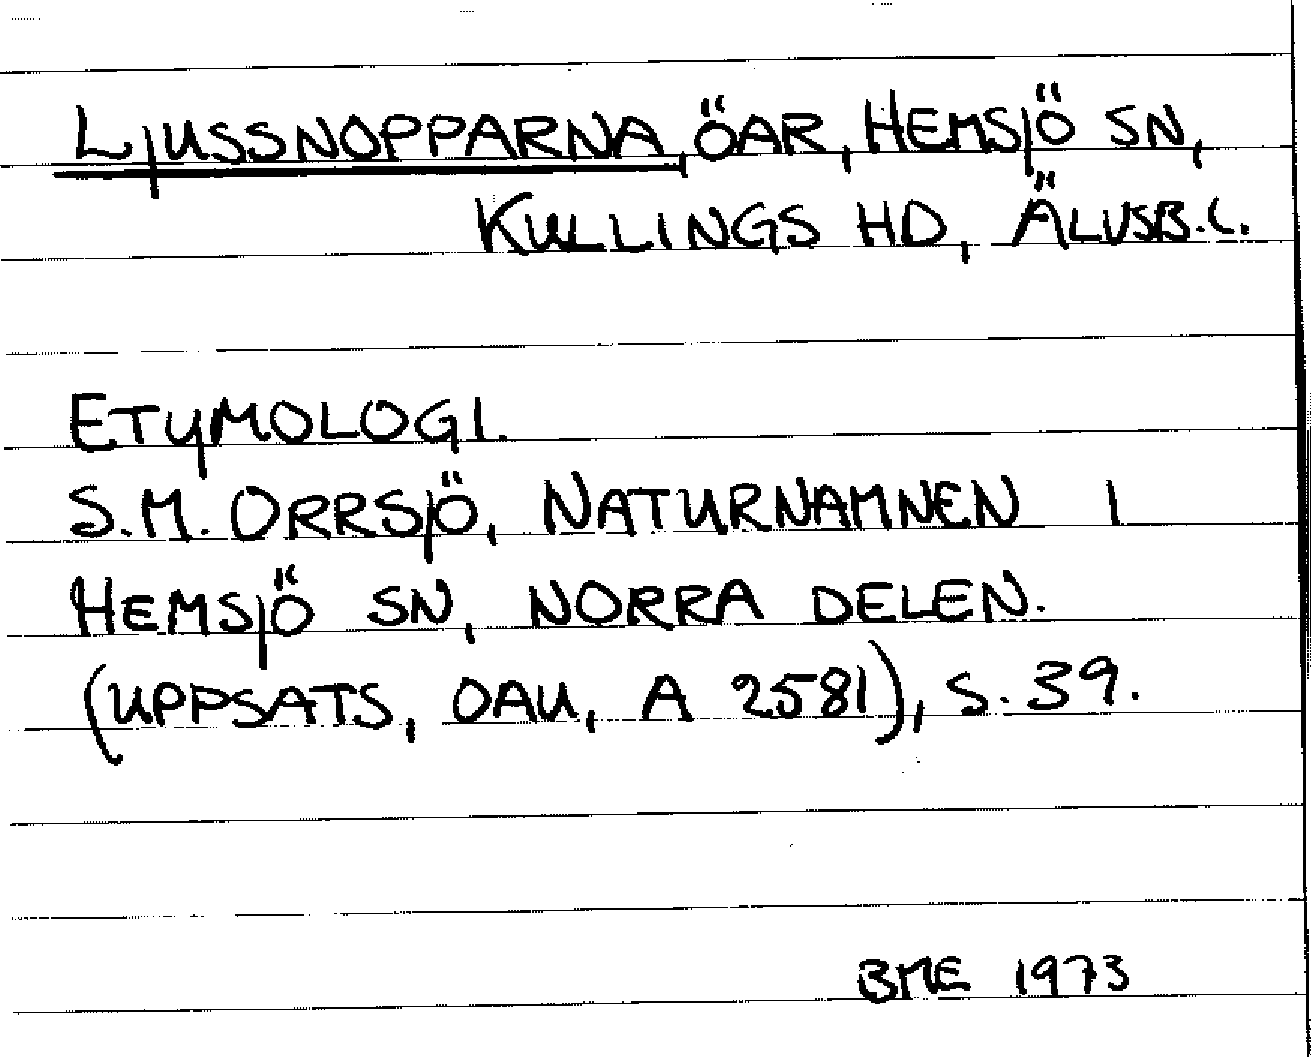 LJUSSNOPPARNA, ÖAR, HEMSJÖ SN,
KULLINGS HD, ÄLVSB.L.
ETYMOLOGI.
S.M. ORRSJÖ, NATURNAMNEN I
HEMSJÖ SN, NORRA DELEN.
(UPPSATS, OAU, A 2581), S. 39.
BME 1973